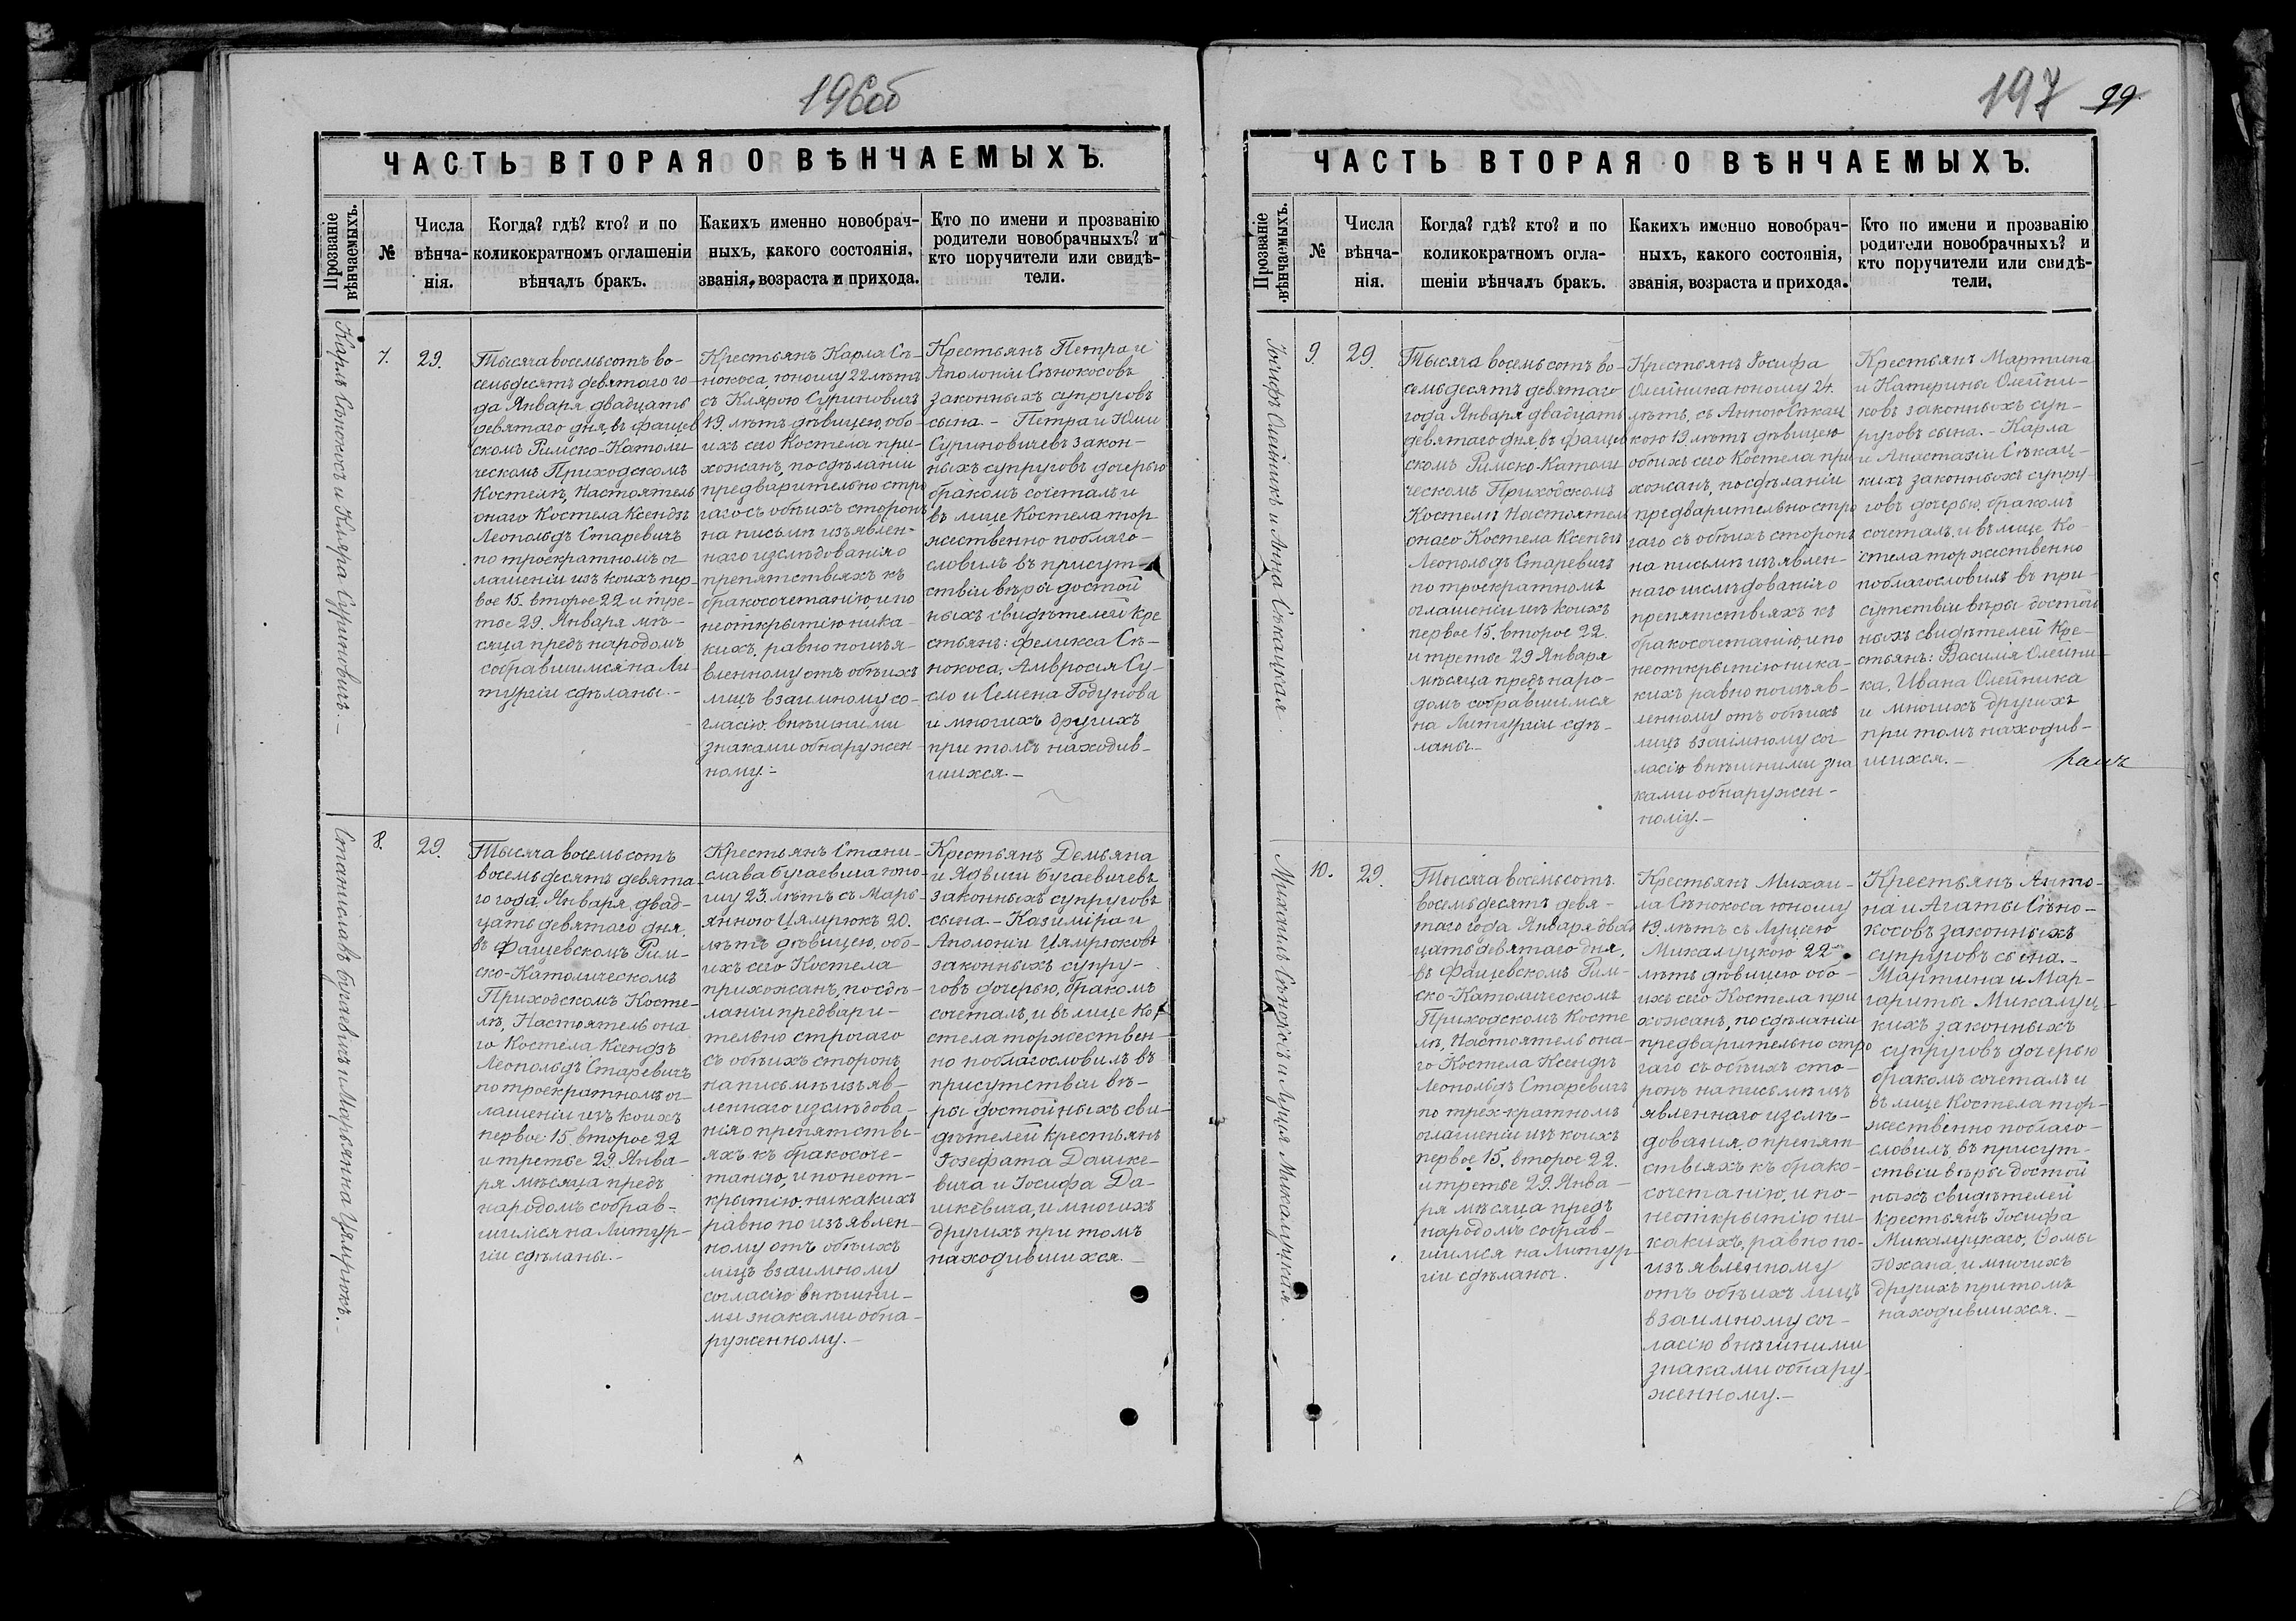 196об
ЧАСТЬ ВТОРАЯ О ВѢНЧАЕМЫХЪ.
Прозваніе вѣнчаемыхъ.
№
Числа вѣнча-
нія.
Когда? гдѣ? кто? и по
коликократномъ оглашеніи
вѣнчалъ бракъ.
Какихъ именно новобрач-
ныхъ, какого состоянія,
званія, возраста и прихода.
Кто по имени и прозванію
родители новобрачныхъ? и
кто поручители или свидѣ-
тели.
Карлъ Сѣнокосъ и Кляра Суриновичъ.
7.
29.
Тысяча восемьсотъ во-
семьдесятъ девятаго го-
да Января двадцать
девятаго дня, въ Фащев
скомъ Римско-Католи-
ческомъ Приходскомъ
Костелѣ, Настоятель
онаго Костела Ксендзъ
Леопольдъ Старевичъ
по троекратномъ ог-
лашеніи изъ коихъ пер-
вое 15. второе 22 и тре-
тье 29. Января мѣ-
сяца предъ народомъ
собравшимся на Ли-
тургіи сдѣланы.-
Крестьянъ Карла Сѣ-
нокоса, юношу 22 лѣтъ
съ Клярою Суриновичъ
19. лѣтъ дѣвицею, обо-
ихъ сего Костела при-
хожанъ, по сдѣланіи
предварительно стро
гаго съ обѣихъ сторонъ
на письмѣ изъявлен-
наго изслѣдованія о
препятствіяхъ къ
бракосочетанію, и по
неоткрытію ника-
кихъ, равно по изъя-
вленному отъ обѣихъ
лицъ взаимному со-
гласію. внѣшними
знаками обнаружен
ному.-
Крестьянъ Петра и
Аполоніи Сѣнокосовъ
законныхъ супруговъ
сына - Петра и Юліи
Суриновичевъ закон-
ныхъ супруговъ дочерью
бракомъ сочеталъ и
въ лице Костела тор
жественно поблаго-
словилъ въ присут-
ствіи вѣры достой
ныхъ свидѣтелей Кре
стьянъ: Феликса Сѣ-
нокоса, Амвросія Су-
сло и Семена Годунова
и многихъ другихъ
при томъ находив-
шихся.-
Станиславъ Бугаевичъ и Марьянна Цямрюкъ.-
8.
29.
Тысяча восемьсотъ
восемьдесятъ девята-
го года, Января, двад-
цать девятаго дня,
въ Фащевскомъ Рим-
ско-Католическомъ
Приходскомъ Косте-
лѣ, Настоятель она
го Костела Ксендзъ
Леопольдъ Старевичъ
по троекратномъ ог-
лашеніи изъ коихъ
первое 15. второе 22
и третье 29. Янва-
ря мѣсяца предъ
народомъ собрав-
шимся на Литур-
гіи сдѣланы.-
Крестьянъ Стани-
слава Бугаевича юно-
шу 23. лѣтъ съ Марь-
янною Цямрюкъ 20.
лѣтъ дѣвицею, обо-
ихъ сего Костела
прихожанъ, по сдѣ-
ланіи предвари-
тельно строгаго
съ обѣихъ сторонъ
на письмѣ изъяв-
леннаго изслѣдова-
нія о препятстві-
яхъ къ бракосоче-
танію, и по неот-
крытію. никакихъ
равно по изъявлен-
ному отъ обѣихъ
лицъ взаимному
согласію внѣшни-
ми знаками обна-
руженному.-
Крестьянъ Демьяна
и Ядвиги Бугаевичевъ
законныхъ супруговъ
сына.- Казиміра и
Аполоніи Цямрюковъ
законныхъ супру-
говъ дочерью, бракомъ
сочеталъ, и въ лице Ко
стела торжествен-
но поблагословилъ въ
присутствіи вѣ-
ры достойныхъ сви-
дѣтелей крестьянъ
Іозефата Дашке-
вича и Іосифа Да-
шкевича, и многихъ
другихъ при томъ
находившихся.-
197 99.
ЧАСТЬ ВТОРАЯ О ВѢНЧАЕМЫХЪ.
Прозваніе вѣнчаемыхъ.
№
Числа вѣнча-
нія.
Когда? гдѣ? кто? и по
коликократномъ огла-
шеніи вѣнчалъ бракъ.
Какихъ именно новобрач-
ныхъ, какого состоянія,
званія, возраста и прихода.
Кто по имени и прозванію
родители новобрачныхъ? и
кто поручители или свидѣ-
тели.
Іосифъ Олейникъ и Анна Сѣкацкая.
9.
29.
Тысяча восемьсотъ во-
семьдесятъ девятаго
года Января двадцать
девятаго дня, въ Фащев
скомъ Римско-Католи
ческомъ Приходскомъ
Костелѣ Настоятель
онаго Костела Ксендзъ
Леопольдъ Старевичъ
по троекратномъ
оглашеніи изъ коихъ
первое 15. второе 22.
и третье 29 Января
мѣсяца предъ наро-
домъ собравшимся
на Литургіи сдѣ-
ланы-
Крестьянъ Іосифа
Олейника юношу 24.
лѣтъ, съ Анною Сѣкац
кою 19 лѣтъ дѣвицею
обоихъ сего Костела при
хожанъ, по сдѣланіи
предварительно стро
гаго съ обѣихъ сторонъ
на письмѣ изъявлен-
наго изслѣдованія о
препятствіяхъ къ
бракосочетанію, и по
неоткрытію ника-
кихъ равно по изъяв-
ленному отъ обѣихъ
лицъ взаимному сог-
ласію внѣшними зна
ками обнаружен-
ному.-
Крестьянъ Мартина
и Катерины Олейни-
ковъ законныхъ суп-
руговъ сына.- Карла
и Анастазіи Сѣкац-
кихъ законныхъ супру-
говъ дочерью, бракомъ
сочеталъ. и въ лице Ко-
стела торжественно
поблагословилъ въ при-
сутствіи вѣры достой
ныхъ свидѣтелей Кре-
стьянъ: Василія Олейни-
ка, Ивана Олейника
и многихъ другихъ
при томъ находив-
шихся.-
Михаилъ Сѣнокосъ и Луція Микалуцкая.
10.
29.
Тысяча восемьсотъ
восемьдесятъ девя-
таго года Января двад
цать девятаго дня,
въ Фащевскомъ Рим-
ско-Католическомъ
Приходскомъ Косте
лѣ, Настоятель она-
го Костела Ксендзъ
Леопольдъ Старевичъ
по трех-кратномъ
оглашеніи изъ коихъ
первое 15. второе 22.
и третье 29. Янва-
ря мѣсяца предъ
народомъ собрав-
шимся на Литур-
гіи сдѣланы.
Крестьянъ Михаи-
ла Сѣнокоса юношу
19. лѣтъ съ Луцією
Микалуцкою 22
лѣтъ дѣвицею обо-
ихъ сего Костела при
хожанъ, по сдѣланіи
предварительно стро
гаго съ обѣихъ сто-
ронъ на письмѣ изъ
явленнаго изслѣ-
дованія, о препят-
ствіяхъ къ брако-
сочетанію, и по-
неоткрытію ни-
какихъ, равно по-
изъявленному
отъ обѣихъ лицъ
взаимному сог-
ласію внѣшними
знаками обнару-
женному.-
Крестьянъ Анто-
на и Агаты Сѣно-
косовъ законныхъ
супруговъ сына.-
Мартина и Мар-
гариты Микалуц-
кихъ законныхъ
супруговъ дочерью
бракомъ сочеталъ и
въ лице Костела тор-
жественно поблаго-
словилъ, въ присут-
ствіи вѣры достой
ныхъ свидѣтелей
крестьянъ Іосифа
Микалуцкаго, Ѳомы
Юхана, и многихъ
другихъ при томъ
находившихся.-